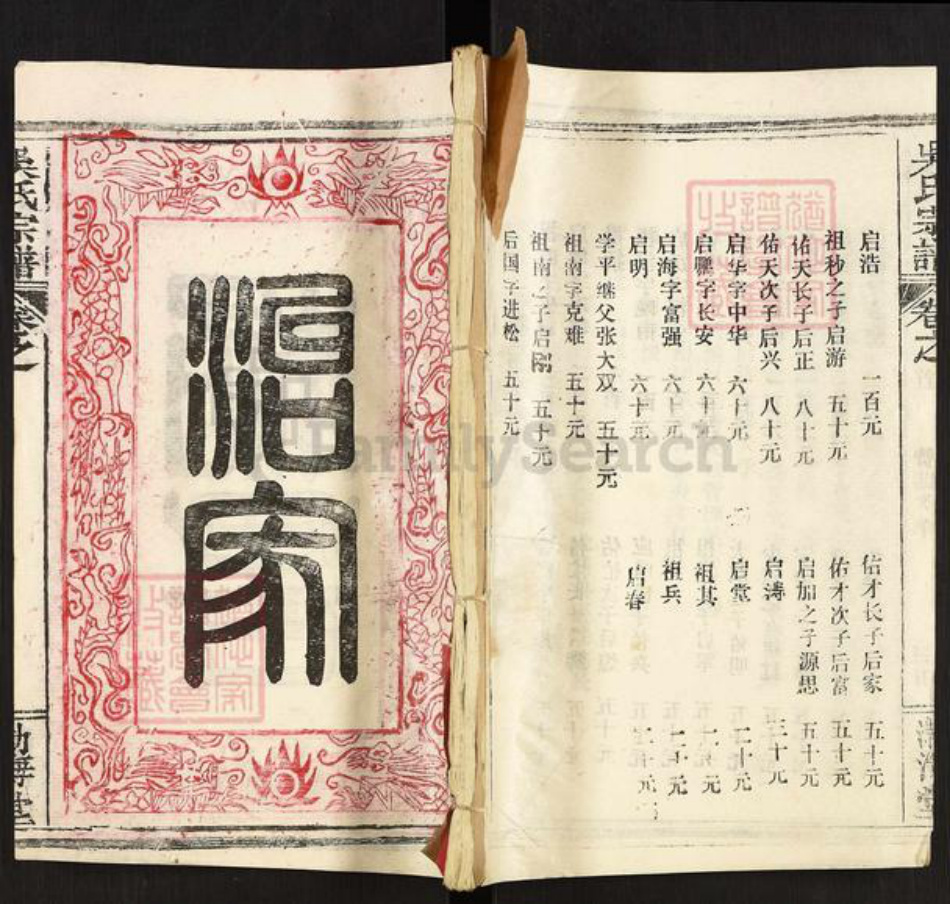 吴氏宗谱
卷之
启浩 一百元
祖秒之子启游 五十元
佑天长子后正 八十元
佑天次子后兴 八十元
启华字中华 六十元
启鹏字长安 六十元
启海字富强 六十元
启明 六十元
学平继父张大双 五十元
祖南字克难 五十元
祖南之子启刚 五十元
后国字进松 五十元
佑才长子后家 五十元
佑才次子后富 五十元
启加之子源思 五十元
启涛 二十元
启堂 二十元
祖其 二十元
祖兵 二十元
启春 二十元
治家
吴氏宗谱
卷之
FamilySearch